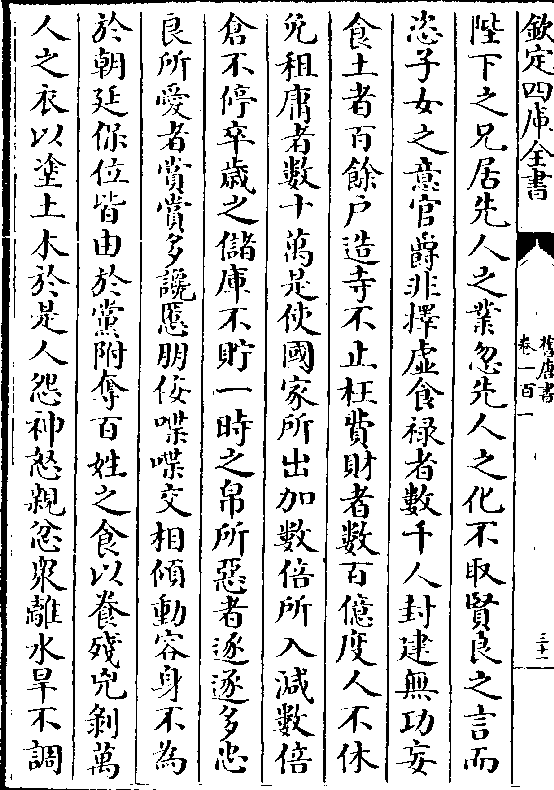 欽定四庫全書
舊唐書
卷一百一
三十一
陛下之兄居先人之業忽先人之化不取賢良之言而
恣子女之意官爵非擇虛食禄者數千人封建無功妄
食土者百餘户造寺不止枉費財者數百億度人不休
免租庸者數十萬是使國家所出加數倍所入減數倍
倉不停卒歲之儲庫不貯一時之帛所惡者逐逐多忠
良所愛者賞賞多讒慝朋佞喋喋交相傾動容身不為
於朝廷保位皆由於黨附奪百姓之食以養殘兇剝萬
人之衣以塗土木於是人怨神怒親忿衆離水旱不調